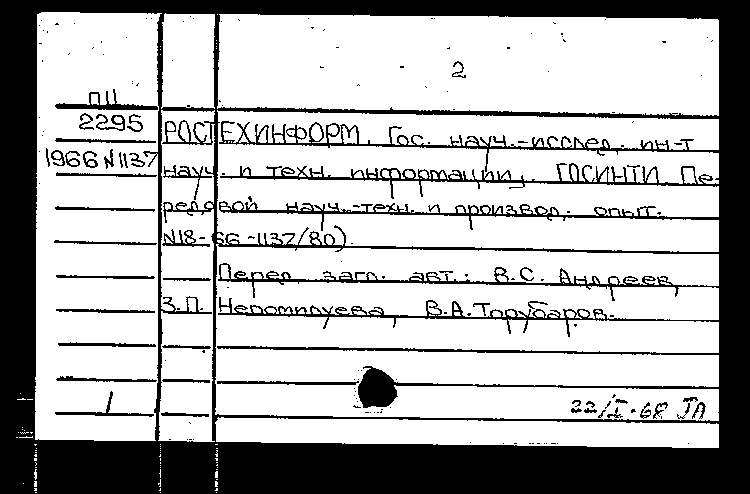 2
П11
2295
РОСТЕХИНФОРМ. Гос. науч.-исслед. ин-т
1966 N1137
науч. и техн. информации,. ГОСИНТИ Пе-
редовой науч.-техн. и производ. опыт.
N18-66-1137/80)
Перед загл. авт.: В.С. Андреев,
З.П. Непомилуева, В.А. Торубаров.
22/I-68